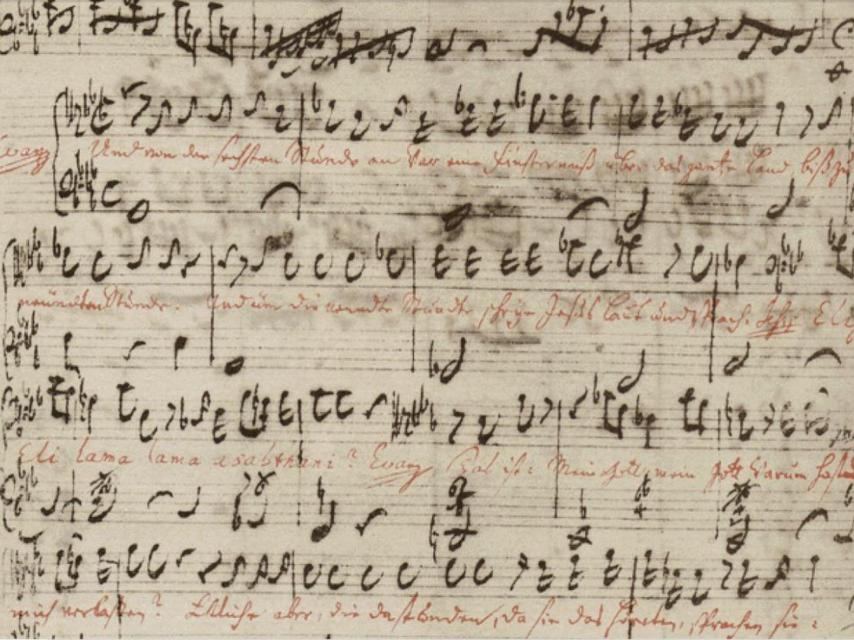 Evang Und von der sechsten Stunde an war eine Finsternuß über das gantze Land biß zu
neundten Stunde. Und um die neundte Stunde schrye Jesus laut und sprach. Eli
Eli lama lama asabthani? Evang Das ist: Mein Gott, mein Gott warum hastu
mich verlaßen? Etliche aber, die da stunden, da sie das höreten, sprachen sie: